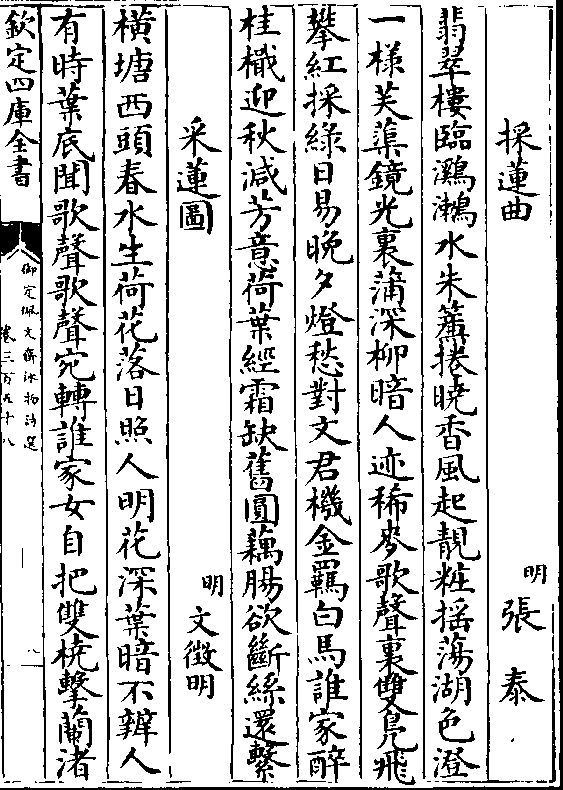 採蓮曲
明張泰
翡翠樓臨鸂鶒水朱簾捲曉香風起靚粧搖蕩湖色澄
一樣芙蕖鏡光裏蒲深柳暗人迹稀麥歌聲裏雙鳧飛
攀紅採綠日易晚夕燈愁對文君機金羈白馬誰家醉
桂檝迎秋減芳意荷葉經霜缺舊圓藕腸欲斷絲還繫
采蓮圖
明文徵明
橫塘西頭春水生荷花落日照人明花深葉暗不辨人
有時葉底聞歌聲歌聲宛轉誰家女自把雙橈擊蘭渚
欽定四庫全書
御定佩文齋詠物詩選
卷三百五十八
八